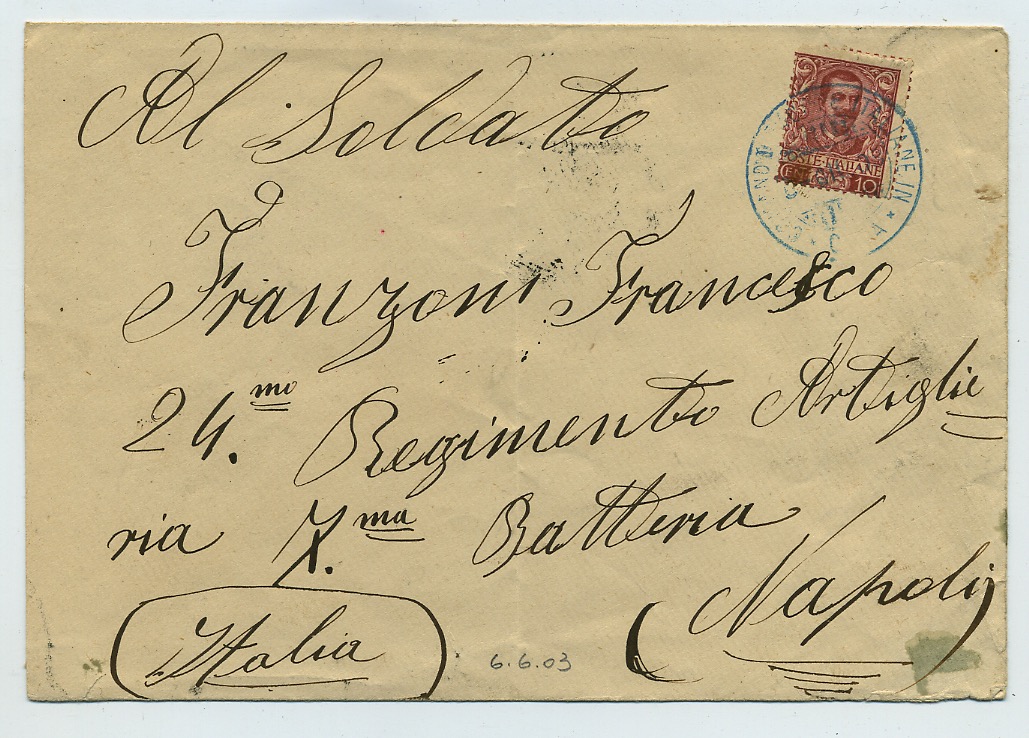 Al Soldato
Franzoni Francesco
24.mo Regimento Artiglie=
ria X.ma Batteria
(Napoli)
(Italia)
6.6.03
POSTE·ITALIANE
10